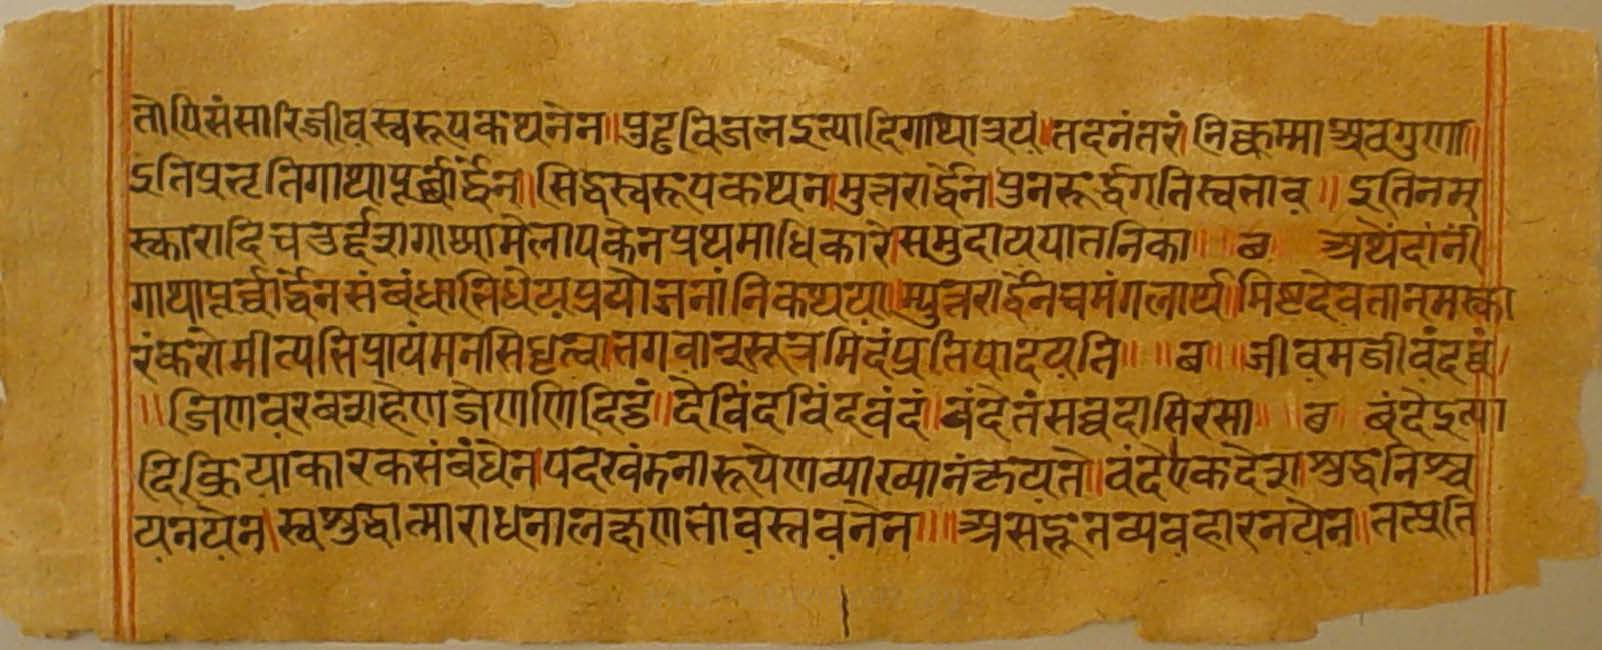 तोपि संसारिजीवस्वरूपकथनेन॥ पुढविजलइत्यादिगाथात्रयं॥ तदनंतरं। निक्कम्मा अवगुणा॥
इतिप्रभृतिगाथापूर्व्वार्द्धेन॥ सिद्धस्वरूपकथन। मुत्तरार्द्धेन। पुनरूर्द्धगतिस्वभाव॥ इतिनम
स्कारादिचतुर्द्दशगाथामेलापकेन प्रथमाधिकारे। समुदायपातनिका॥ ब अथेदांनीं
गाथापूर्व्वार्द्धेन संबंधाभिधेयप्रयोजनांनि कथया। म्युत्तरार्द्धेन च मंगलार्थ। मिष्टदेवतानमस्का
रं करोमीत्यभिप्रायं मनसि धृत्वा। भगवान् सूत्रमिदं प्रतिपादयति॥ ॥ब॥ जीवमजीवं दव्वं।
॥ जिणवरवशहेण जेण णिद्दिट्ठं॥ देविंदविंदवंदं॥ वंदे तं सव्वदा सिरसा॥ ब वंदेइत्या
दिक्रियाकारकसंबंधेन। पदखंडनारूपेण व्याख्यानं क्रयते। वंदे एकदेश। शुद्धनिश्च
यनयेन। स्वशुद्धात्माराधनालक्षणभावस्तवनेन॥॥ असद्भूतव्यवहारनयेन॥ तत्प्रति